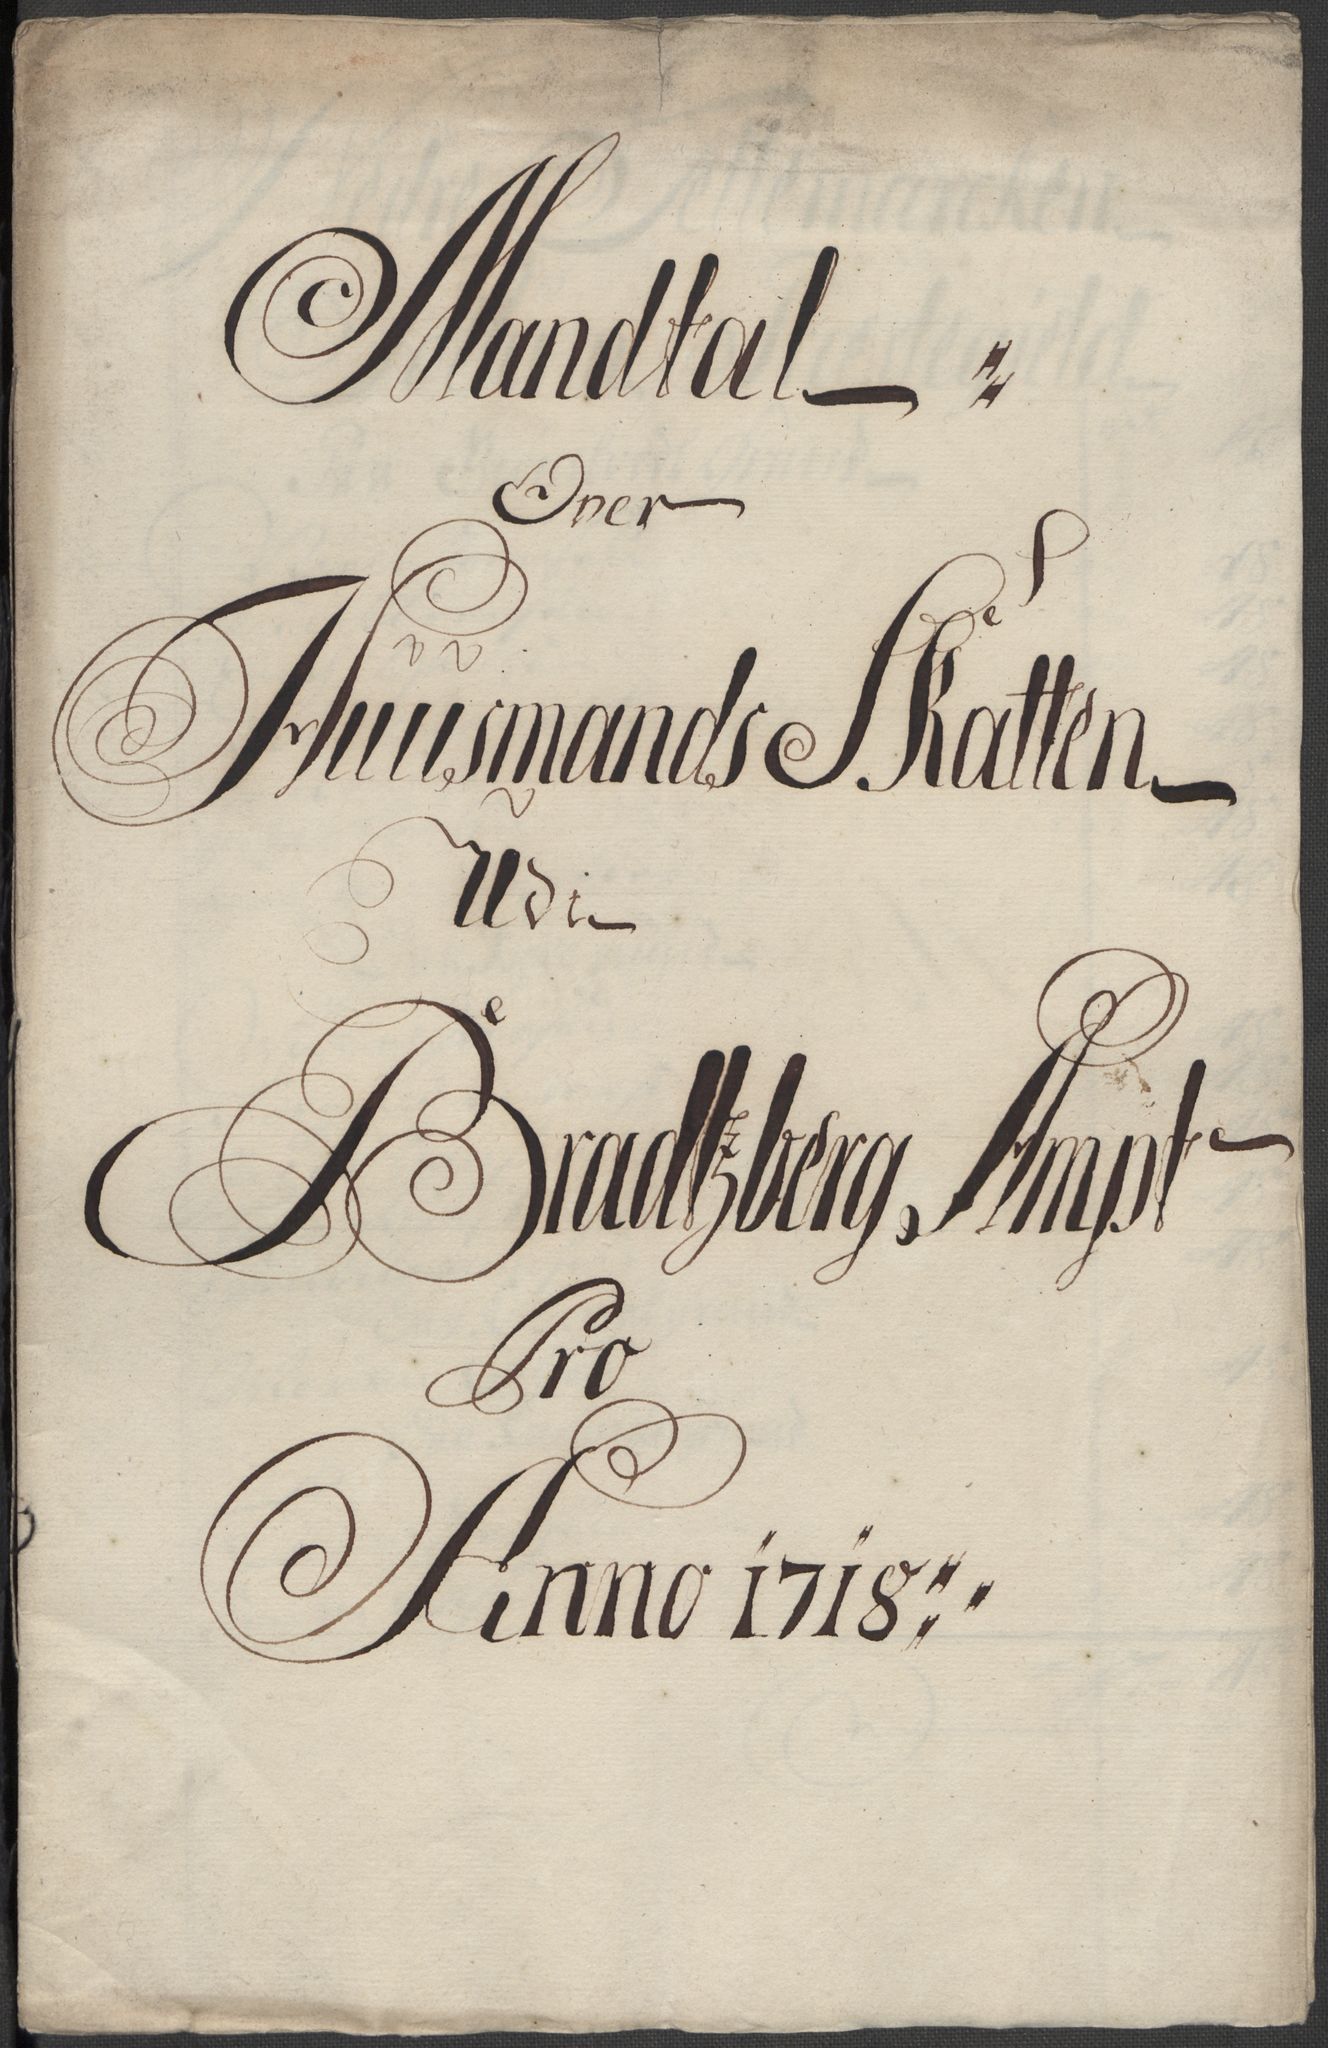 Mandtal
Over
Huusmands Skatten
Udi
Bradtzberg Ampt
Pro
Anno 1718